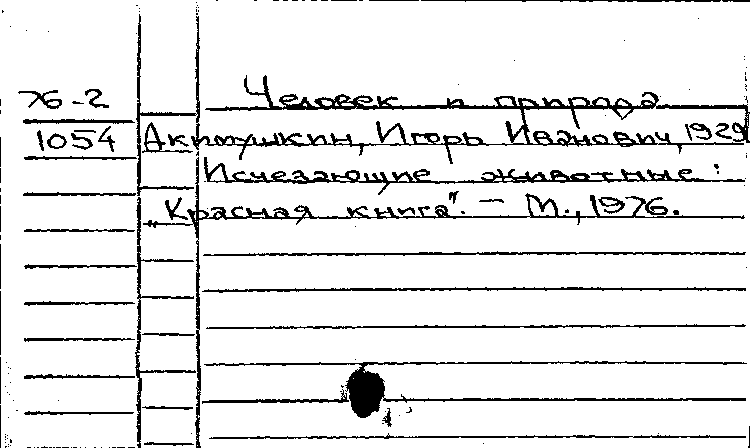 76-2 Человек и природа
1054 Акимушкин, Игорь Иванович, 1929
Исчезающие животные:
„Красная книга". – М., 1976.